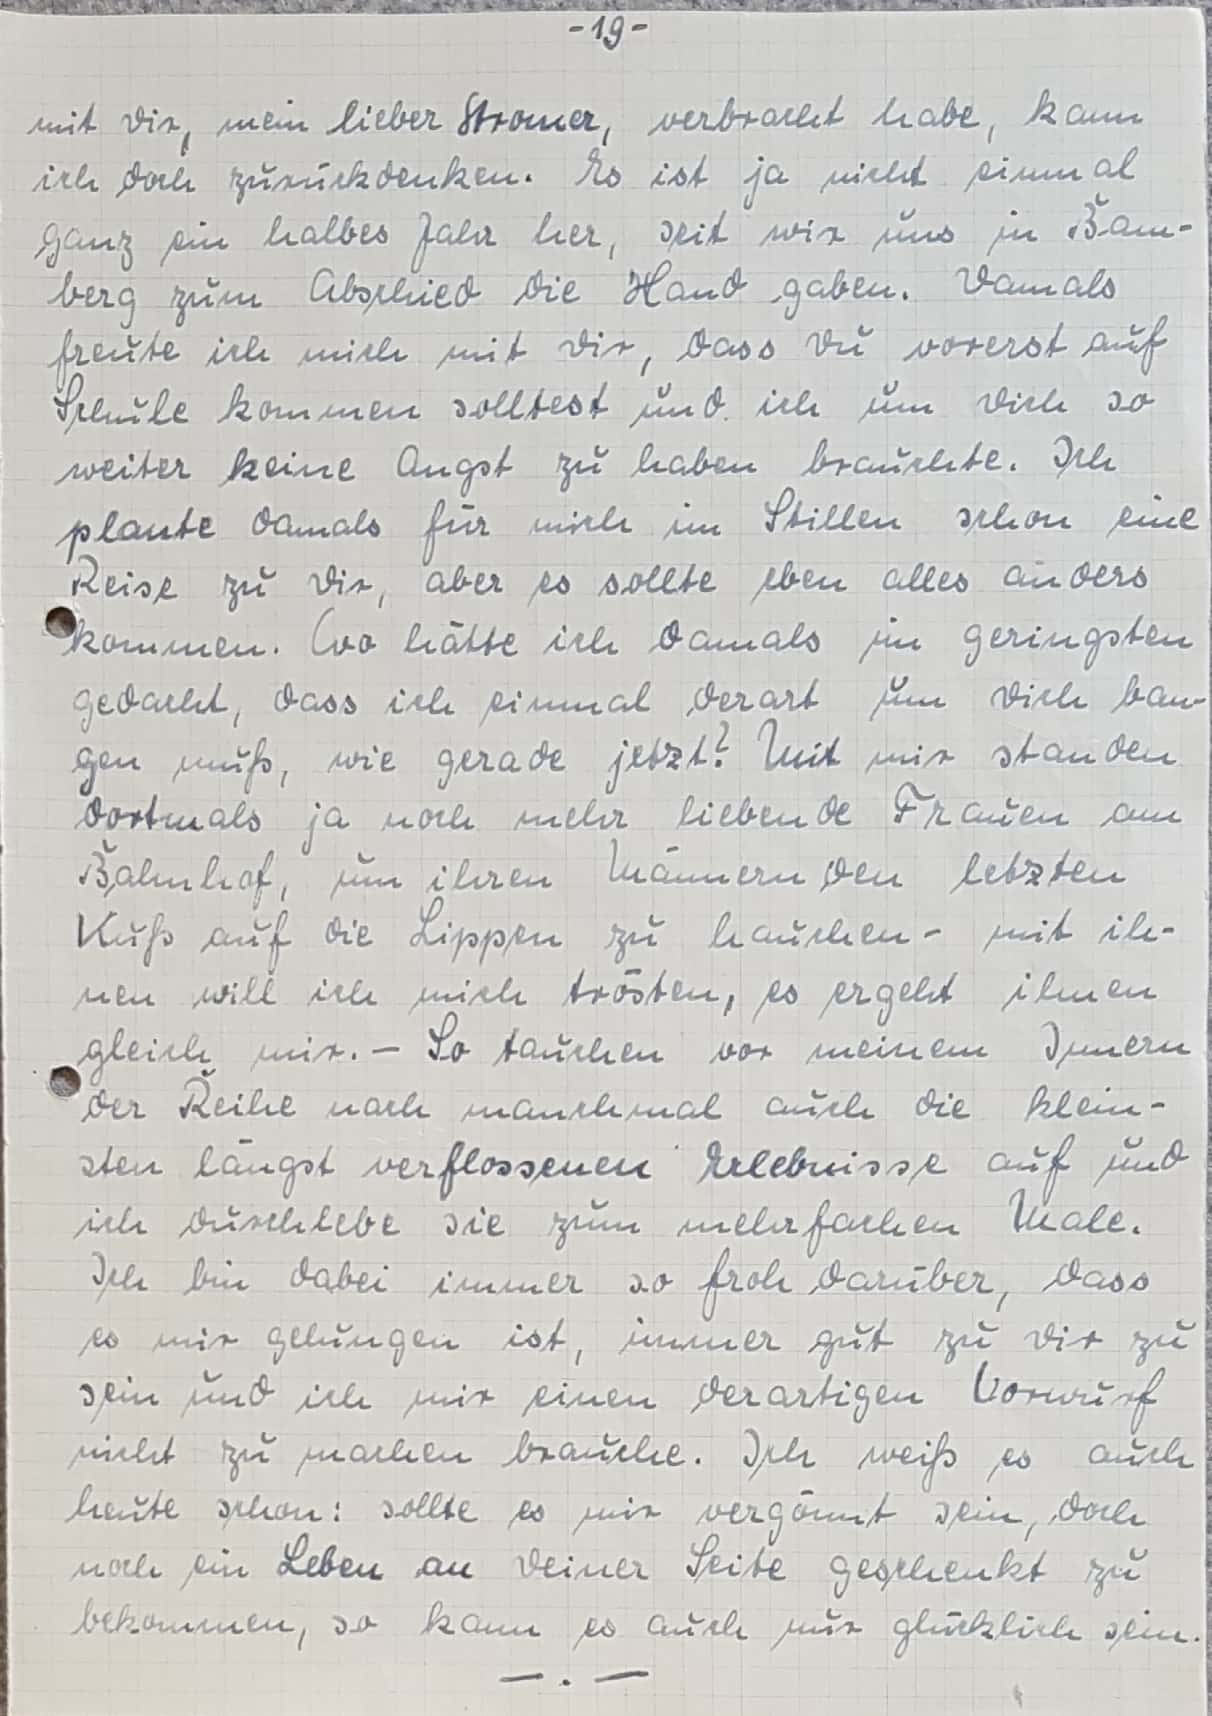 -19-
mit Dir, mein lieber Stromer, verbracht habe, kann
ich doch zurückdenken. Es ist ja nicht einmal
ganz ein halbes Jahr her, seit wir uns in Bam-
berg zum Abschied die Hand gaben. Damals
freute ich mich mit Dir, dass Du vorerst auf
Schule kommen solltest und ich um Dich so
weiter keine Angst zu haben brauchte. Ich
plante damals für mich im Stillen schon eine
Reise zu Dir, aber es sollte eben alles anders
kommen. Wo hätte ich damals im geringsten
gedacht, dass ich einmal derart um Dich ban-
gen muß, wie gerade jetzt? Mit mir standen
dortmals ja noch mehr liebende Frauen am
Bahnhof, um ihren Männern den letzten
Kuß auf die Lippen zu hauchen - mit ih-
nen will ich mich trösten, es ergeht ihnen
gleich mir. - So tauchen vor meinem Innern
der Reihe nach manchmal auch die klein-
sten längst verflossenen Erlebnisse auf und
ich durchlebe sie zum mehrfachen Male.
Ich bin dabei immer so froh darüber, dass
es mir gelungen ist, immer gut zu Dir zu
sein und ich mir einen derartigen Vorwurf
nicht zu machen brauche. Ich weiß es auch
heute schon: sollte es mir vergönnt sein, doch
noch ein Leben an Deiner Seite geschenkt zu
bekommen, so kann es auch nur glücklich sein.
— . —